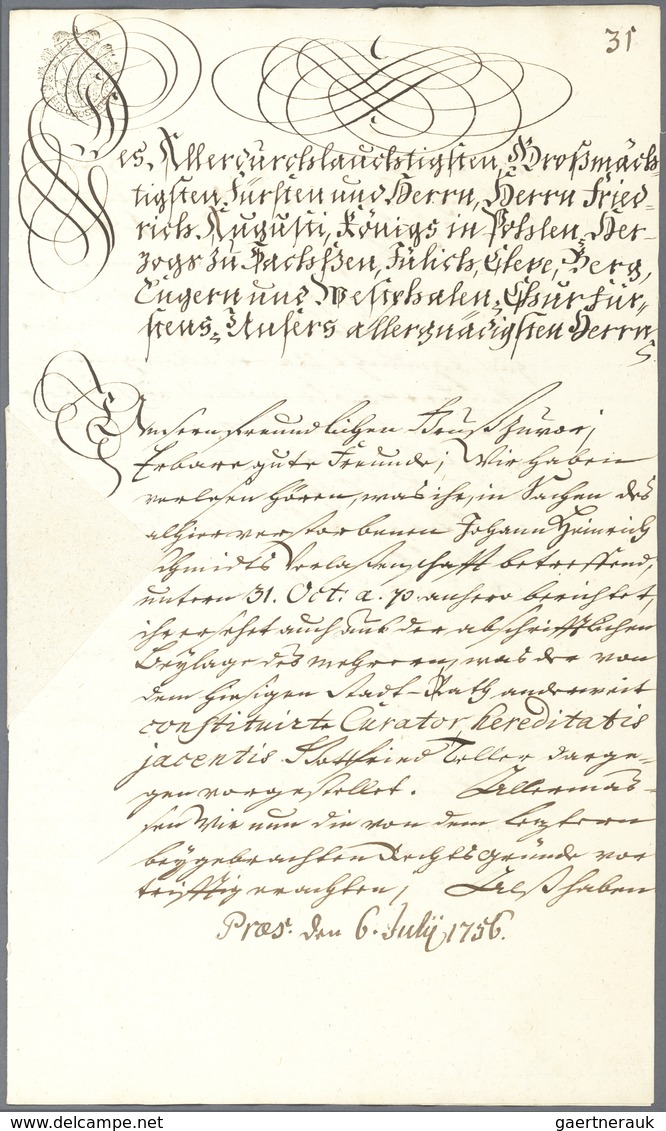 31
Des Allerdurchlauchtigsten, Großmäch-
tigsten Fürsten und Herrn, Herrn Fried-
rich Augusti, Königs in Pohlen, Her-
zogs zu Sachßen, Jülich, Cleve, Berg,
Engern und Westphalen, Churfür-
stens, Unsers allergnädigsten Herrn
Unsern freundlichen Gruß zuvor;
Erbare gute Freunde; Wir haben
verlesen hören, was ihr, in Sachen des
alhier verstorbenen Johann Heinrich
Schmidts Verlaßenschafft betreffend,
unterm 31. Oct: a. p. anhero berichtet,
ihr ersehet auch aus der abschrifftlichen
Beylage des mehrern, was der von
dem hiesigen Stadt-Rath anderweit
constituirte Curator hereditatis
jacentis Gottfried Teller darge-
gen vorgestellet. Allermas-
sen Wir nun die von dem leztern
beygebrachten Rechtsgründe vor
trifftig erachten, Alß haben
Præs. den 6. Julij 1756.
www.delcampe.net
gaertnerauk